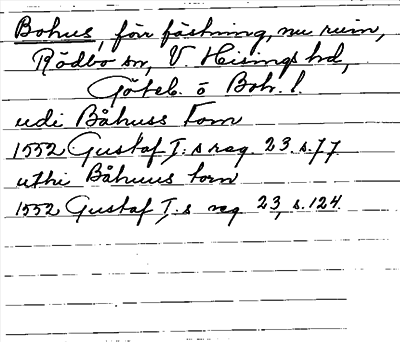 Bohus, förr fästning, nu ruin,
Rödbo sn, V. Hisings hd,
Göteb. o Boh. l.
udi Båhuss Torn
1552 Gustaf I:s reg. 23. s. 77
uthi Båhuus torn
1552 Gustaf I:s reg 23, s. 124